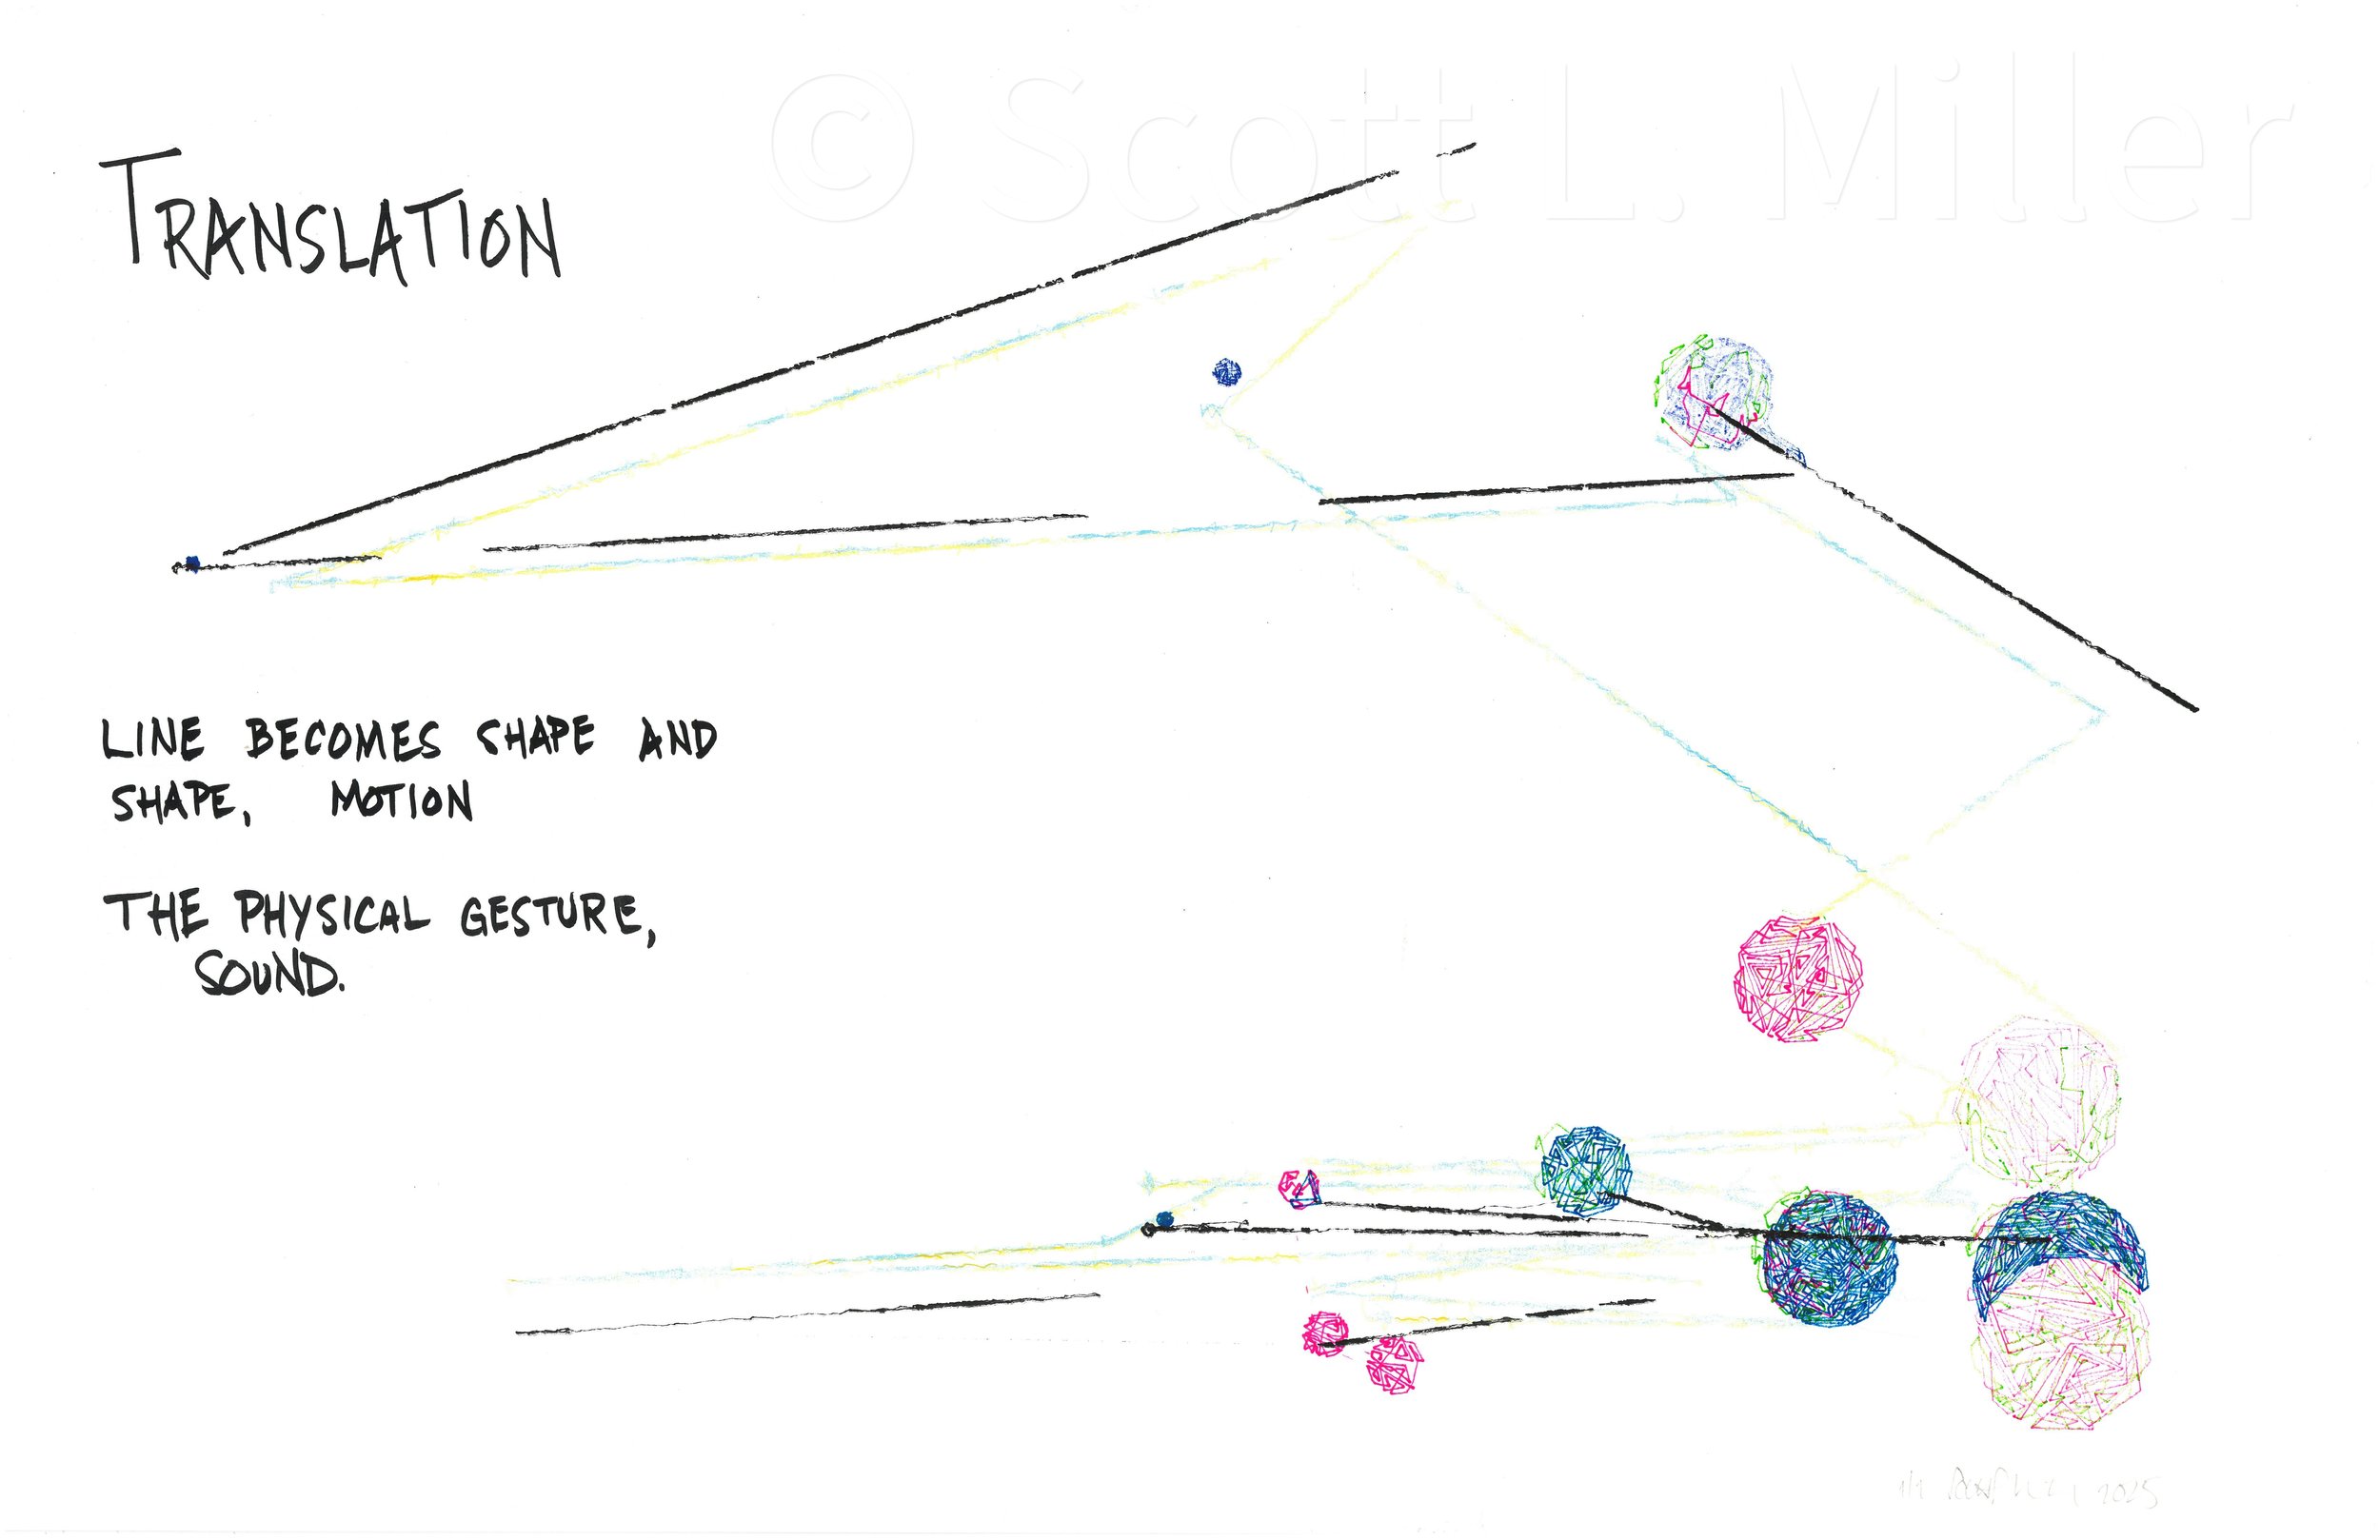 © Scott L. Miller
TRANSLATION
LINE BECOMES SHAPE AND
SHAPE, MOTION
THE PHYSICAL GESTURE,
SOUND.
1/1 2025